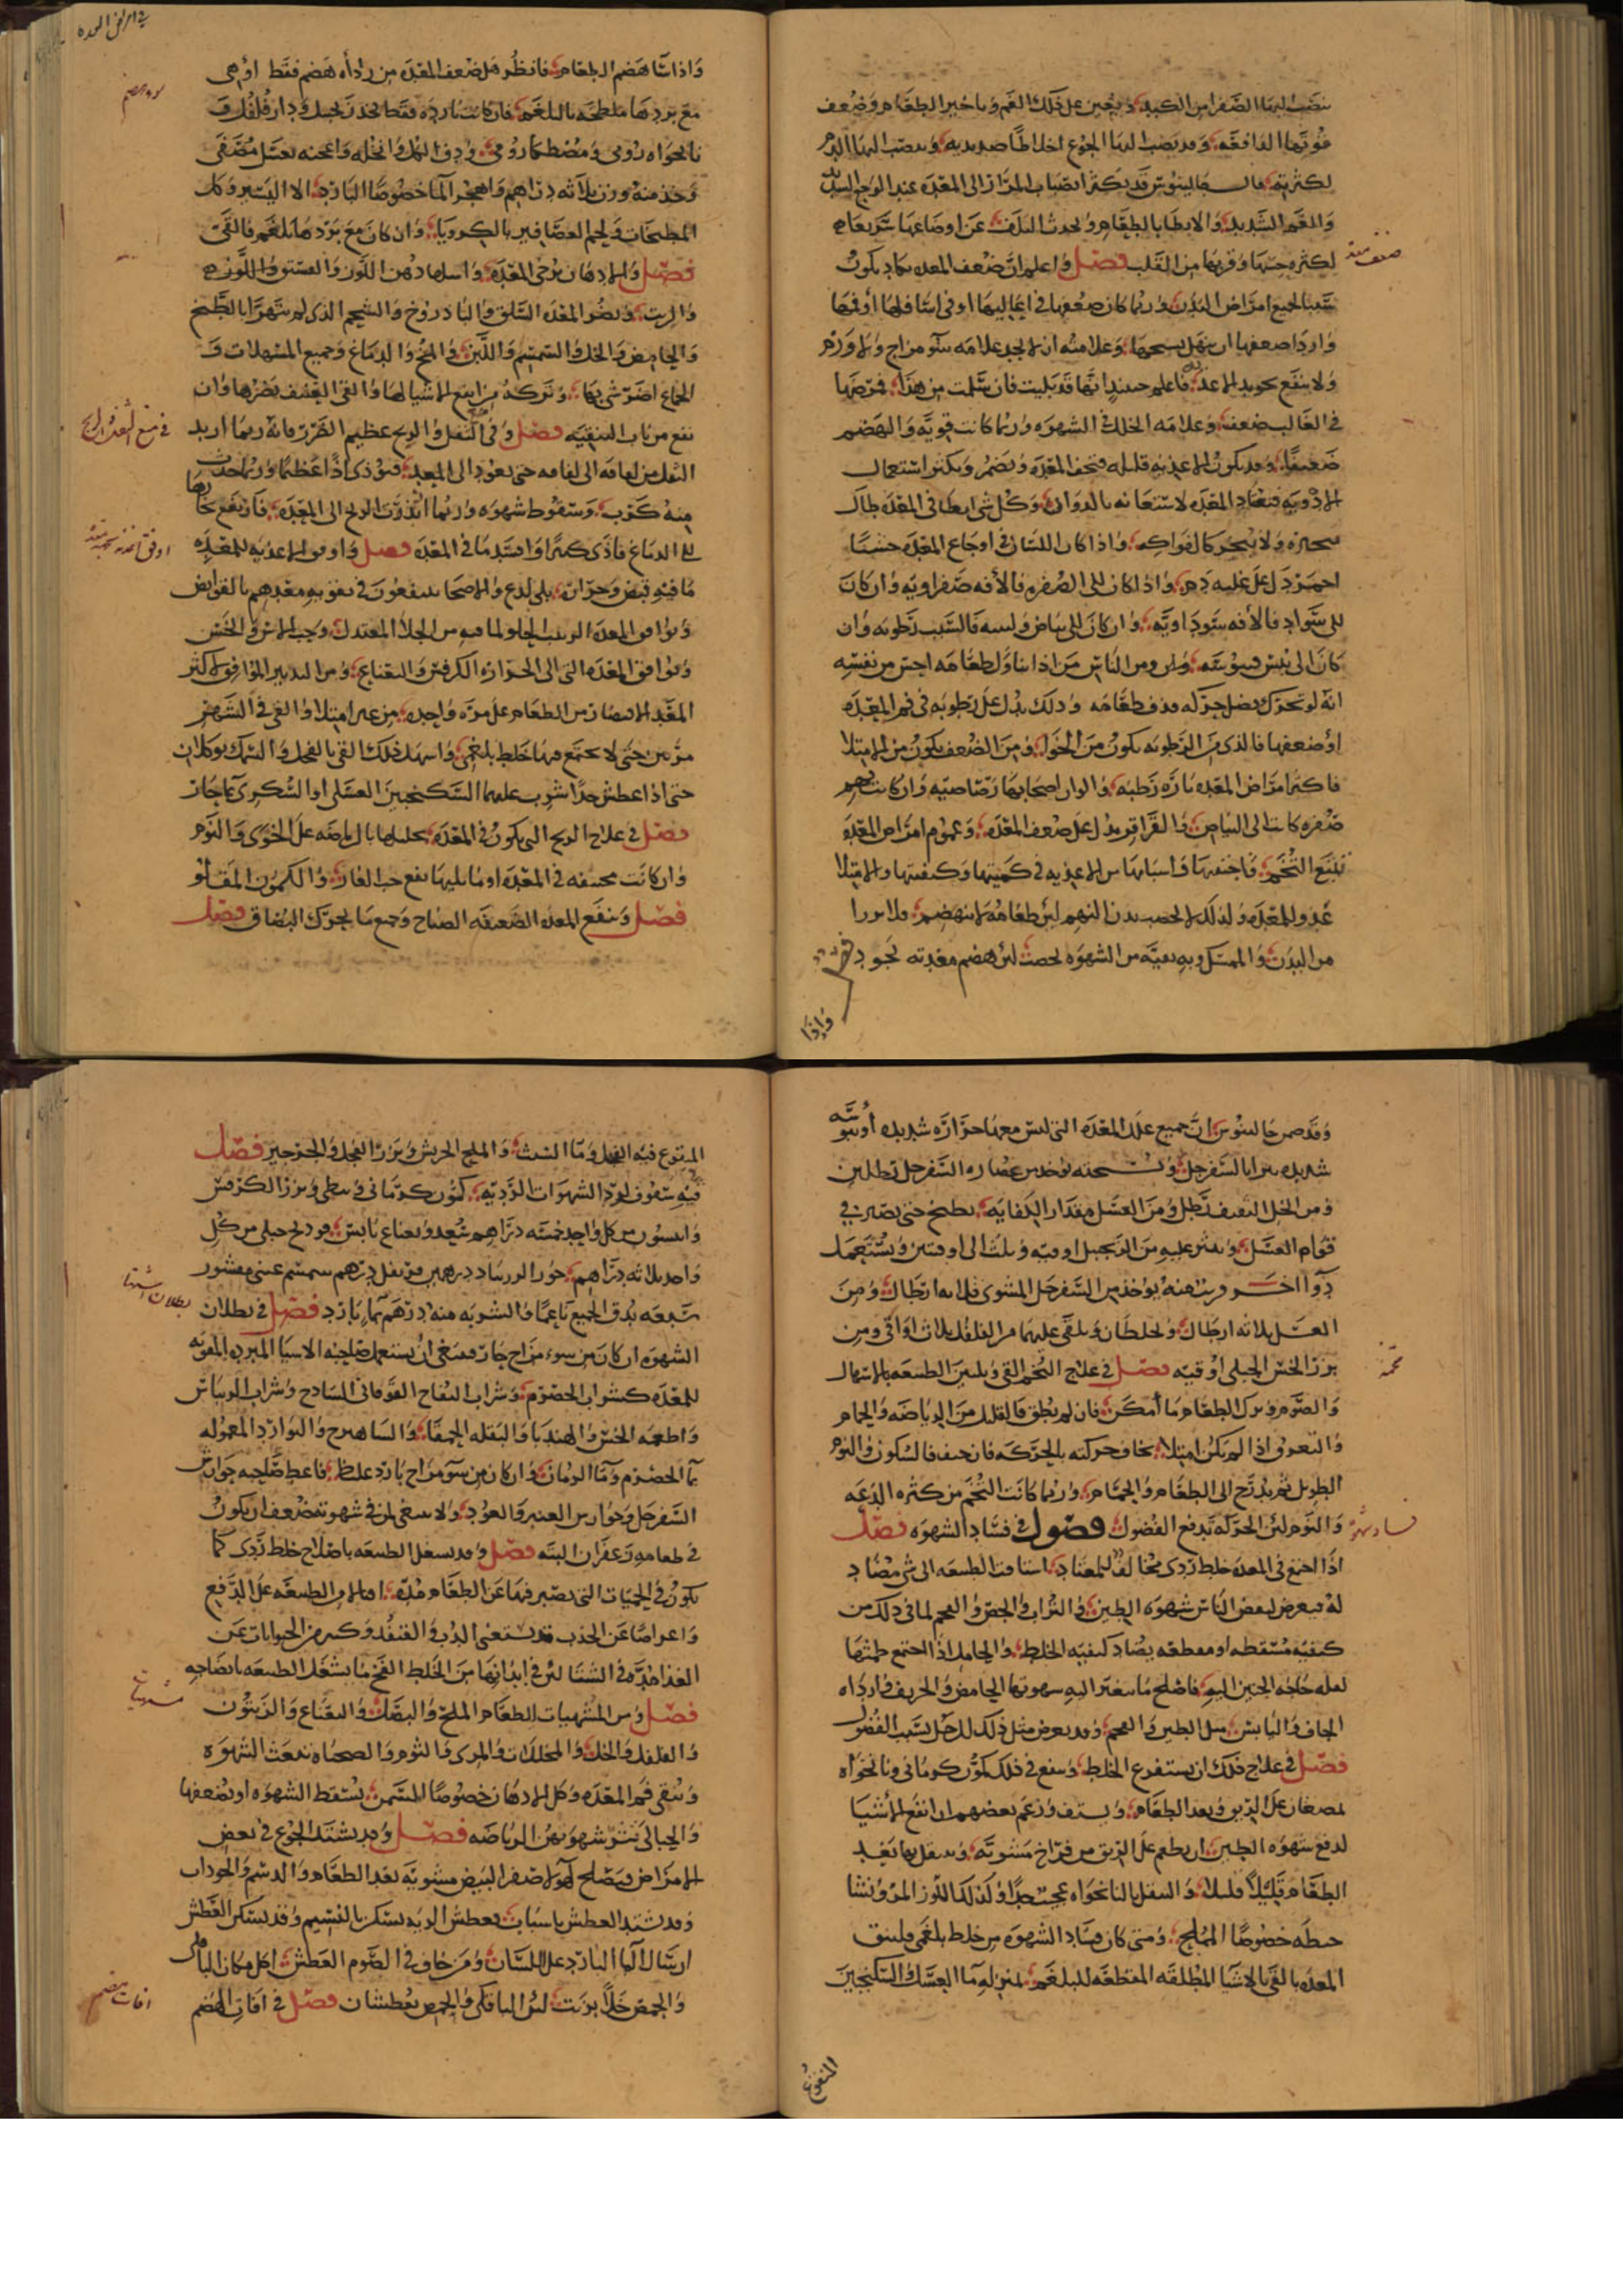 ينصب اليها الصفرا من الكبد ويعين على ذلك الغم وتاخير الطعام وضعف
قوتها الدافعة وقد ينصب اليها الجوع اخلاطا صديديه وينصب اليها الدم
لكثرته قال جالينوس قد يكثر انصباب المرار الى المعدة عند الوجع الشديد
والغم الشديد والابطا بالطعام ويحدث التلف عن اوضاعها سريعا
لكثرة حسها وقربها من القلب فصل واعلم ان ضعف المعده يكاد يكون
سببا لجميع امراض البدن وربما كان ضعفها في اعاليها او في اسافلها او فيهما
واردا ضعفها ان يتهلهل نسجها وعلامته ان لا يجد علامه سوء مزاج ولا ورم
ولا ينفع تجويد الاغذيه فاعلم حينئذ انها قد بليت فان سلمت من هذا فمرضها
في الغالب ضعف وعلامه الخلط الشهوه وربما كانت قويه والهضم
ضعيفا وقد يكون الاغذيه قليله فتخف المعده وتضمر ويكثر استعمال
الادويه فتعتاد المعده لاستعانه بالدوا وكل شي ابطا في المعده طال
تبخيره ولا يتبخر كالفواكه واذا كان اللسان في اوجاع المعده خشنا
احمر دل على غلبه دم واذا كان الى الصفره فالافه صفراويه وان كان
الى سواد فالافه سوداويه وان كان الى بياض ولبنيه فالسبب رطوبه وان
كان الى يبس فيبوسه ومن الناس من اذا تناول طعامه احس من نفسه
انه لو تحرك فضل حركه قذف طعامه وذلك يدل على رطوبه في فم المعده
او ضعفها فالذي من الرطوبه يكون من الخوا ومن الضعف يكون من الامتلا
فاكثر امراض المعده بارده رطبه والوان اصحابها رصاصيه وان كانت بهم
صفره كانت الى البياض والقراقر يدل على ضعف المعده وعموم امراض المعده
تتبع التخم فاجتنبها واسبابها من الاغذيه في كميتها وكيفيتها والامتلا
عدو للمعده ولذلك لا يخصب بدن النهم لان طعامه لا ينهضم فلا يزرا
من البدن والممسك وبه بقيه من الشهوه يخصب لان هضم معدته تجود
واذا
ضعف معده
واذا اسا هضم الطعام فانظر هل ضعف المعده من رداه هضم فقط او هي
مع بردها ملطخه بالبلغم فان كانت بارده فقط فخذ زنجبيل ودار فلفل و
نانخواه رومي ومصطكا رومي ودق الكل وانخله واعجنه بعسل مصفى
وخذ منه وزن ثلاثه دراهم واهجر الما خصوصا البارد الا اليسير وكل
المطجنات ولحم العصافير بالكرويا وان كان مع بردها بلغم فالقي
فصل والادهان ترخي المعده واسلمها دهن اللوز والفستق واللوز
والزيت ويضر المعده السلق والبادروخ والشيح الذي لم يتهرا بالطبخ
والحامض والخل والسمسم واللبن والمخ والدماغ وجميع المسهلات و
الجماع اضر شي بها وتركه من انفع الاشيا لها والقي العنيف يضرها وان
نفع من باب التنقيه فصل وفي الثفل والريح عظيم الضرر فانه ربما ارتد
الثفل من لفافه الى لفافه حتى يعود الى المعده فتوذي اذا عظيما وربما حدث
منه كرب وسقوط شهوه وربما ارتدت الريح الى المعده فارتفع بخارها
الى الدماغ فاذى كثيرا وافسد ما في المعده فصل واوفق الاغذيه للمعده
ما فيه قبض وحراره بلا لذع والاصحا ينتفعون في تقويه معدهم بالقوابض
ويوافق المعده الزبيب الحلو لما فيه من الجلا المعتدل وحب الاس والخس
ويوافق المعده التي الى الحراره الكرفس والنعناع ومن التدبير الموافق لاكثر
المعد الاقتصار من الطعام على مره واحده من غير امتلا والقي في الشهر
مرتين حتى لا يجتمع فيها خلط بلغمي واسهل ذلك القي بالفجل والسمك يوكلان
حتى اذا عطش جدا شرب عليهما السكنجبين العسلي او السكري بما حار
فصل في علاج الريح التي تكون في المعده تحليلها بالرياضه على الخوى والنوم
وان كانت محتقنه في المعده او ما يليها نفع حب الغار والكمون المقلو
فصل وينفع المعده الضعيفه الصياح وجميع ما يحرك البصاق فصل
في امراض المعده
سوء هضم
في منع الثفل والريح
اوفق اغذيه معده
وقد ضمن جالينوس ان جميع علل المعده التي ليس معها حراره شديده او يبوسه
شديده يبرا بالسفرجل ونسخته يوخذ من عصاره السفرجل رطلين
ومن الخل الثقيف رطل ومن العسل مقدار الكفايه يطبخ حتى يصير في
قوام العسل وينثر عليه من الزنجبيل اوقيه وثلث الى اوقيتين ويستعمل
دوا اخر قريب منه يوخذ من السفرجل المشوي ثلاثه ارطال ومن
العسل ثلاثه ارطال ويخلطان ويلقى عليهما من الفلفل ثلاث اواقي ومن
بزر الخس الجبلي اوقيه فصل في علاج التخم القي وتليين الطبيعه بالاسهال
والصوم وترك الطعام ما امكن فان لم يطق فالقليل من الرياضه والحمام
والتعرق اذا لم يكن امتلا يخاف حركته بالحركه فان خيف فالسكون والنوم
الطويل ثم يدرج الى الطعام والحمام وربما كانت التخم من كثره الدعه
والنوم لان الحركه تدفع الفضول فصول في فساد الشهوه فصل
اذا اجتمع في المعده خلط ردي مخالف للمعتاد اشتاقت الطبيعه الى شي مضاد
له فيعرض لبعض الناس شهوه الطين والتراب والجص والفحم لما في ذلك من
كيفيه منشفه او مقطعه يضاد كيفيه الخلط والحامل اذا اجتمع طمثها
لقله حاجه الجنين اليه فاصلح ما يتغير اليه شهوتها الحامض والحريف واردا
الجاف واليابس مثل الطين والفحم وقد يعرض مثل ذلك للرجل بسبب الفضول
فصل في علاج ذلك ان يستفرغ الخلط وينفع في ذلك كمون كرماني ونانخواه
يمضغان على الريق وبعد الطعام ويستف وزعم بعضهم ان انفع الاشيا
لدفع شهوه الطين ان يطعم على الريق من فراخ مشويه وينتقل بها بعد
الطعام قليلا قليلا والنقل بالنانخواه عجيب جدا وكذلك اللوز المر
خصوصا المملح ومتى كان فساد الشهوه من خلط بلغمي فلينق
المعده بالقي بالاشيا الملطفه المقطعه للبلغم بمنزله ما العسل السكنجبين
المنقوع
تخمه
فساد شهوه
المنقوع فيه الفجل وما الشبث والملح الجريش وبزر الفجل والجرجير فصل
فيه سفوف لعود الشهوات الرديه كمون كرماني ونبطي وبزر الكرفس
وانيسون من كل واحد خمسه دراهم سعد ونعناع يابس فودنج جبلي من كل
واحد ثلاثه دراهم درهمين قرنفل درهم سمسم غير مقشور
سبعه يدق الجميع ناعما والشربه منه درهم بما بارد فصل في بطلان
الشهوه ان كان من سوء مزاج حار فينبغي ان يستعمل صاحبه الاشيا المبرده المقويه
للمعده كشراب الحصرم وشراب التفاح القوقاني الساذج وشراب الريباس
واطعمه الخس والهندبا والبقله الحمقا والبوارد المعموله
بما الحصرم وما الرمان وان كان من سو مزاج بارد غليظ فاعط صاحبه جوارش
السفرجل وجوارش العنبر والعود ولا ينبغي لمن في شهوته ضعف ان يكون
في طعامه زعفران البته فصل وقد يشغل الطبيعه باصلاح خلط ردي كما
يكون في الحميات التي يصبر فيها عن الطعام مده اقبال من الطبيعه على الدفع
واعراضا عن الجذب قد يستغني الدب والقنفد وكثير من الحيوانات عن
الغذا مده في الشتا لان في ابدانها من الخلط الفج ما يشغل الطبيعه بانضاجه
فصل ومن المشهيات للطعام الملح والبصل والنعناع والزيتون
والفلفل والخل والمخللات والمري والثوم والصحناه تبعث الشهوه
وينقي فم المعده وكل الادهان خصوصا السمن يسقط الشهوه او يضعفها
والحبالى تثير شهوتهن الرياضه فصل وقد يشتد الجوع في بعض
الامراض فيصلح لهولا صفر البيض مشويه بعد الطعام والدسم والجوذاب
وقد يشتد العطش باسباب فعطش الريه يسكن بالنسيم وقد يسكن العطش
ارسال الما البارد على اللسان ومن خاف في الصوم العطش اكل مكان الباقلى
والحمص خلا بزيت لان الباقلى والحمص يعطشان فصل في افات الهضم
بطلان اشتها
مشهيات
افات هضم